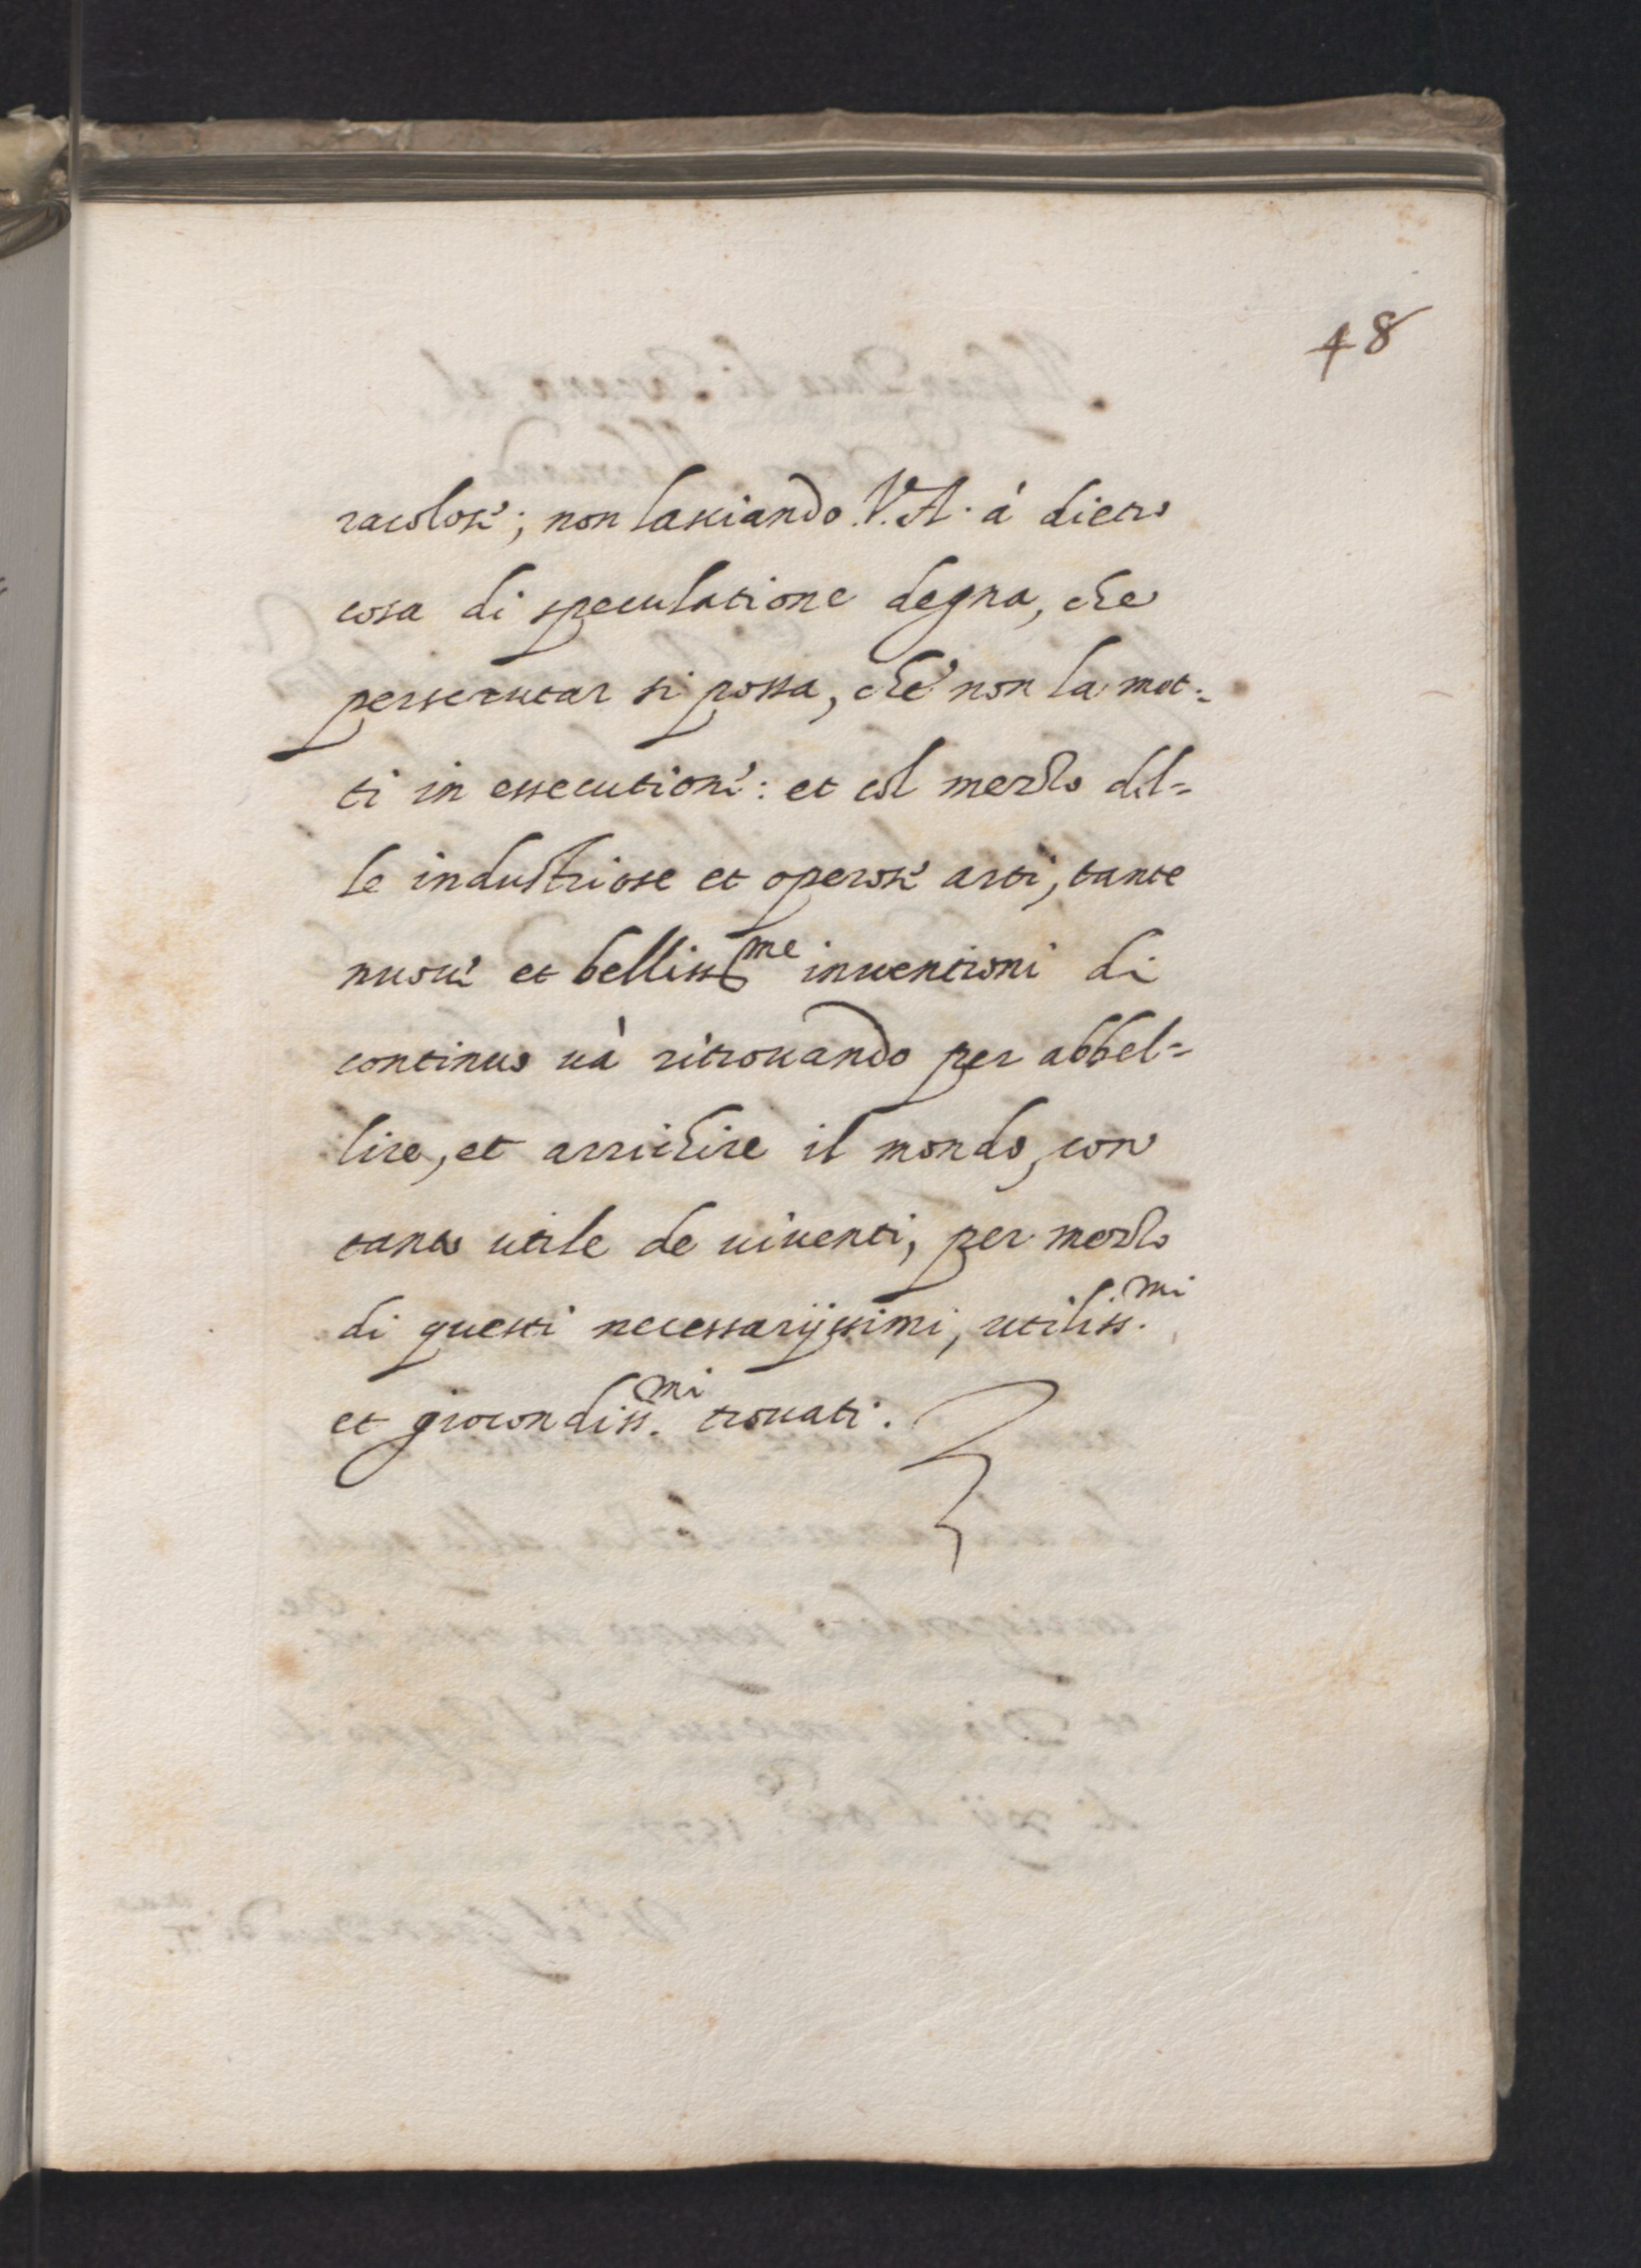 48
racolose; non lasciando V.A. à dietro
cosa di speculatione degna, che
perscrutar si possa, che non la met=
ti in essecutione: et col mezzo del=
le industriose et operose arti, tante
nuoue et belliss.me inuentioni di
continuo uà ritrouando per abbel=
lire, et arrichire il mondo, con
tanto utile de uiuenti, per mezzo
di questi necessarijssimi, utiliss.mi
et giocondiss.mi trouati.